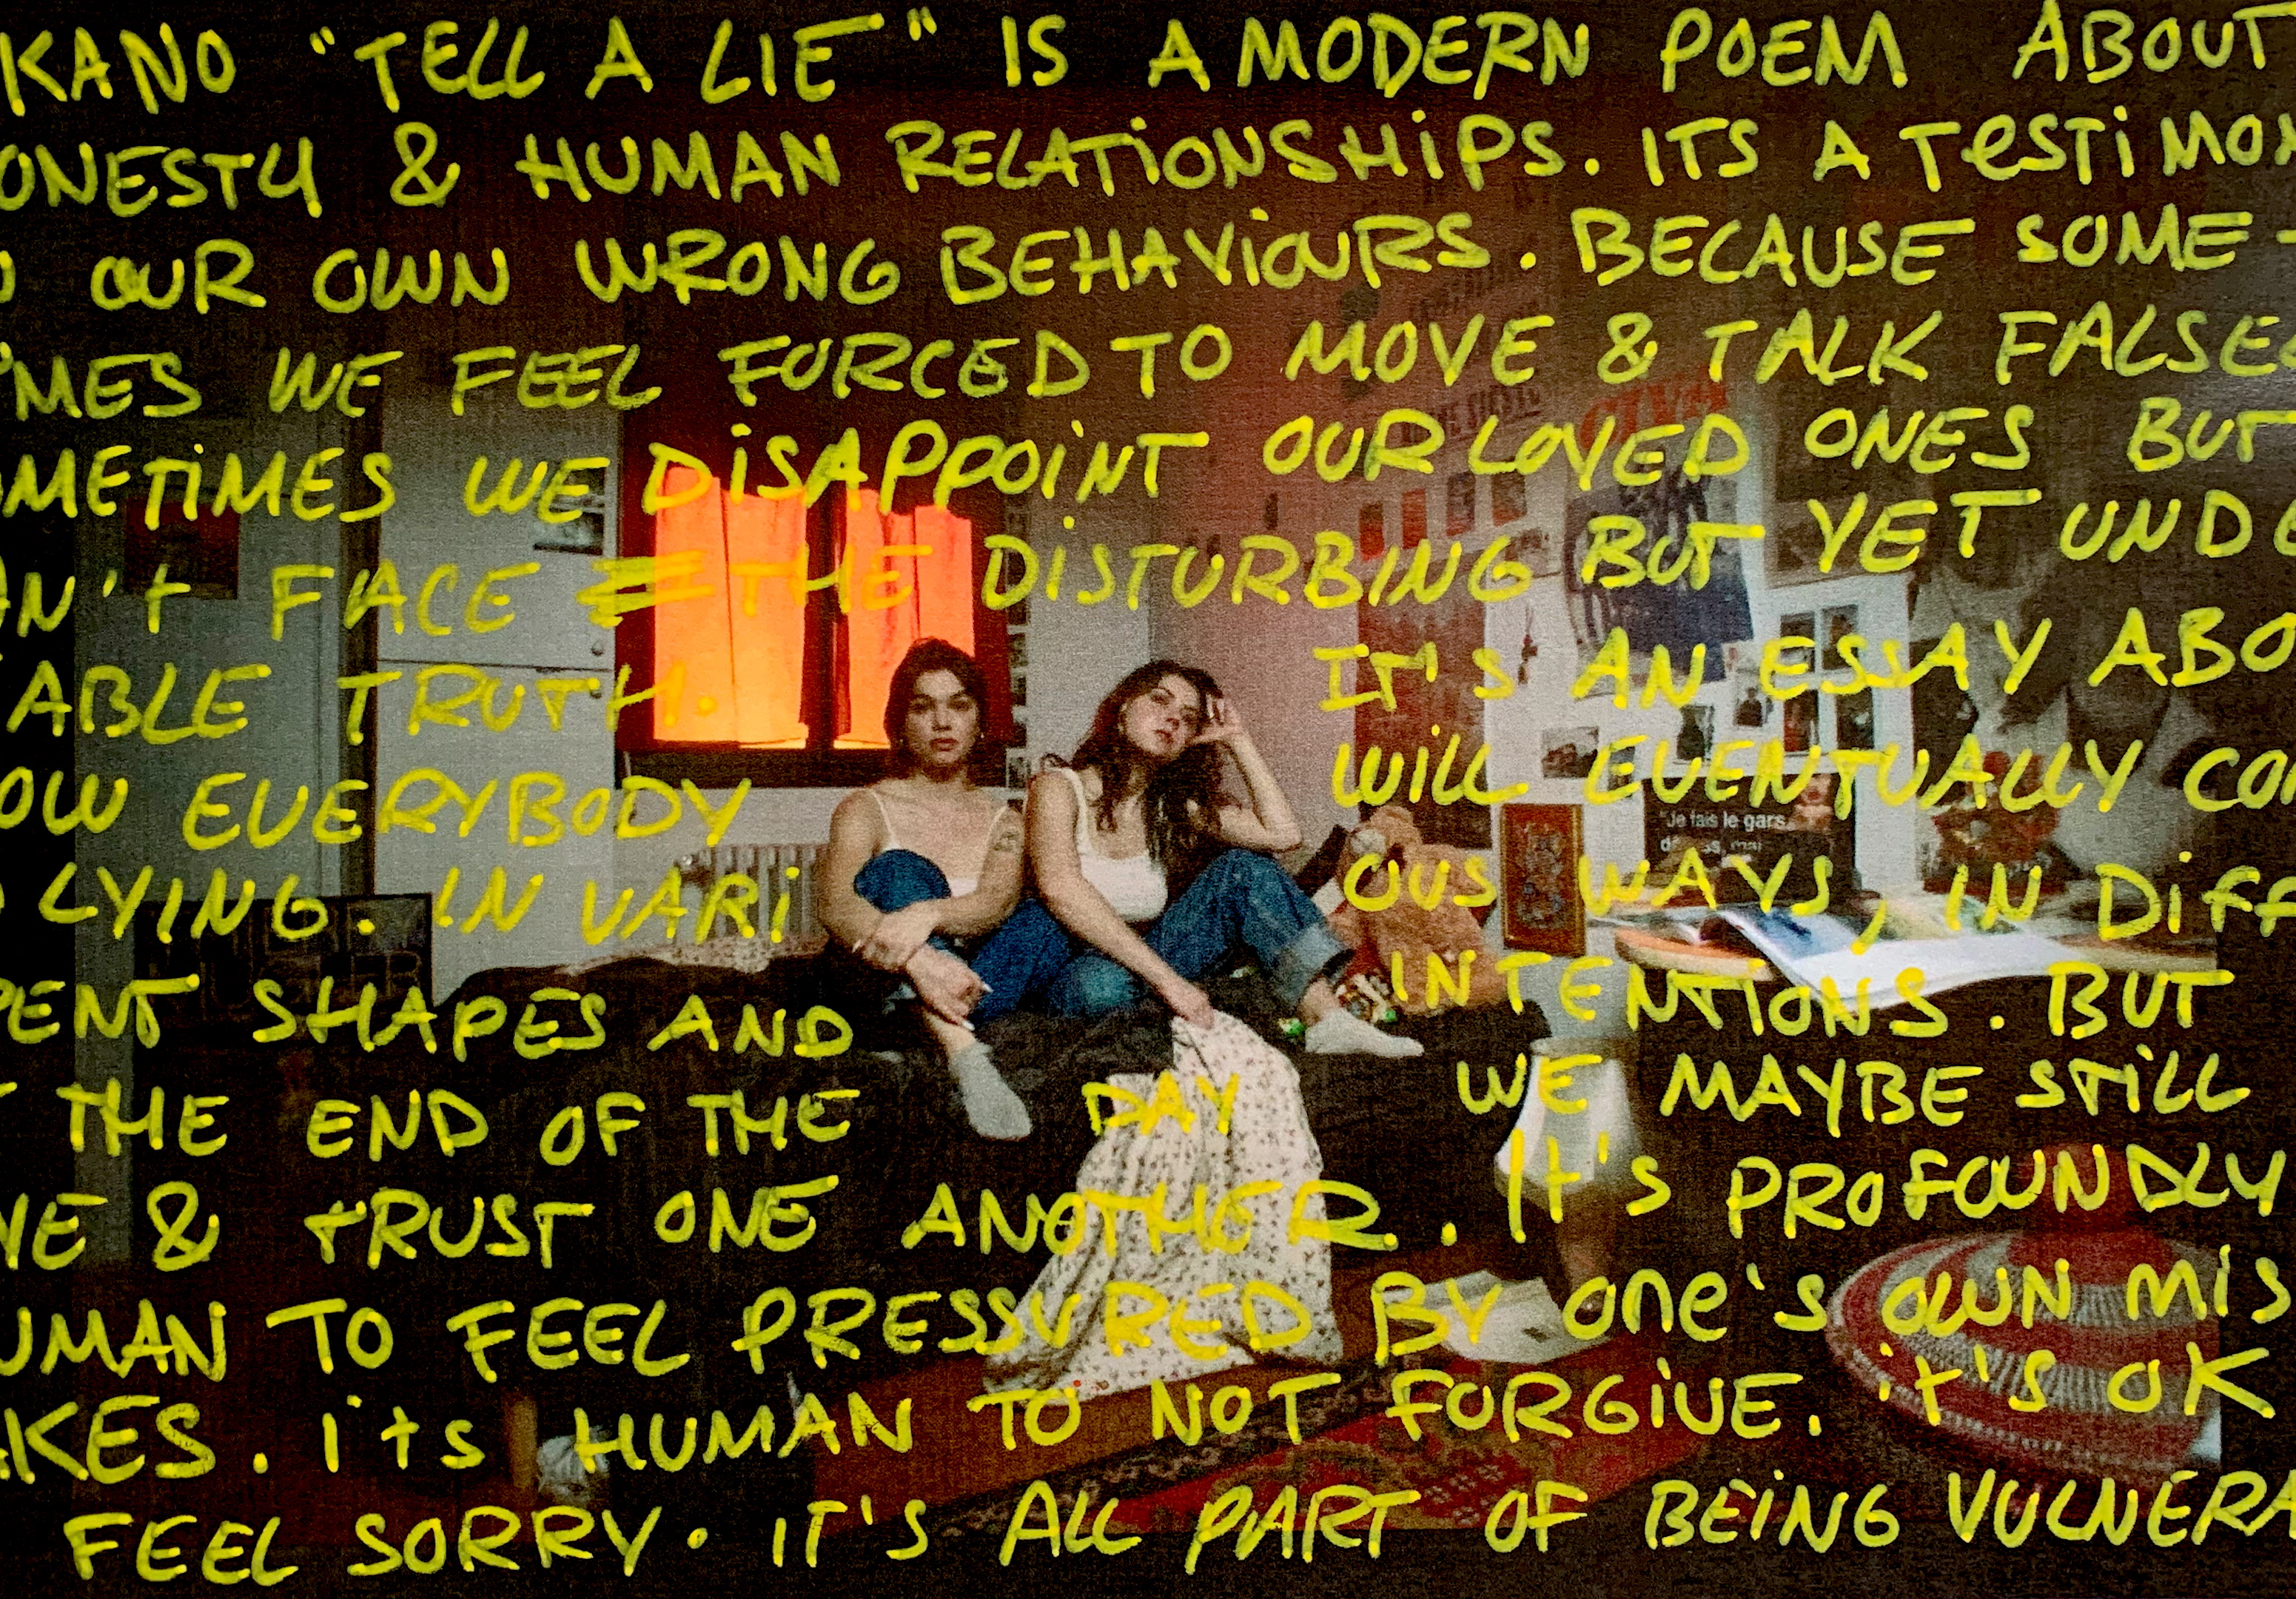 KANO "TELL A LIE" IS A MODERN POEM ABOUT
ONESTY & HUMAN RELATIONSHIPS. ITS A TESTIMON
O OUR OWN WRONG BEHAVIOURS. BECAUSE SOME-
IMES WE FEEL FORCED TO MOVE & TALK FALSE
OMETIMES WE DISAPPOINT OUR LOVED ONES BUT
AN't FACE THE DISTURBING BUT YET UNDE
ABLE TRUTH. IT'S AN ESSAY ABO
OW EVERYBODY WILL EVENTUALLY CO
LYING. IN VARI OUS WAYS, IN DIFF
ENT SHAPES AND INTENTIONS. BUT
T THE END OF THE DAY WE MAYBE STILL
VE & TRUST ONE ANOTHER. It's PROFOUNDLY
UMAN TO FEEL PRESSURED BY one's OWN MIS
AKES. its HUMAN TO NOT FORGIVE. it's OK
FEEL SORRY. IT'S ALL PART OF BEING VULNERA
"Je fais le gars